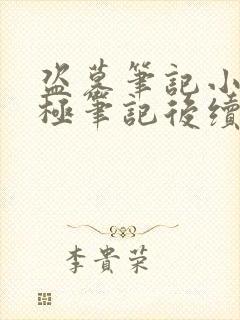 盜墓筆記小
極筆記後續
李貴榮